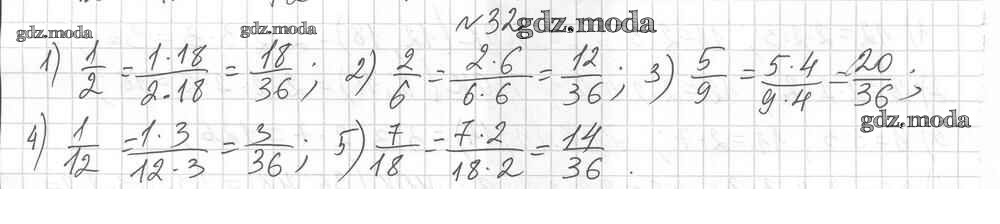 №32 gdz.moda
gdz.moda gdz.moda
1) 1/2 = 1·18/2·18 = 18/36; 2) 2/6 = 2·6/6·6 = 12/36; 3) 5/9 = 5·4/9·4 = 20/36;
gdz.moda
4) 1/12 = 1·3/12·3 = 3/36; 5) 7/18 = 7·2/18·2 = 14/36.